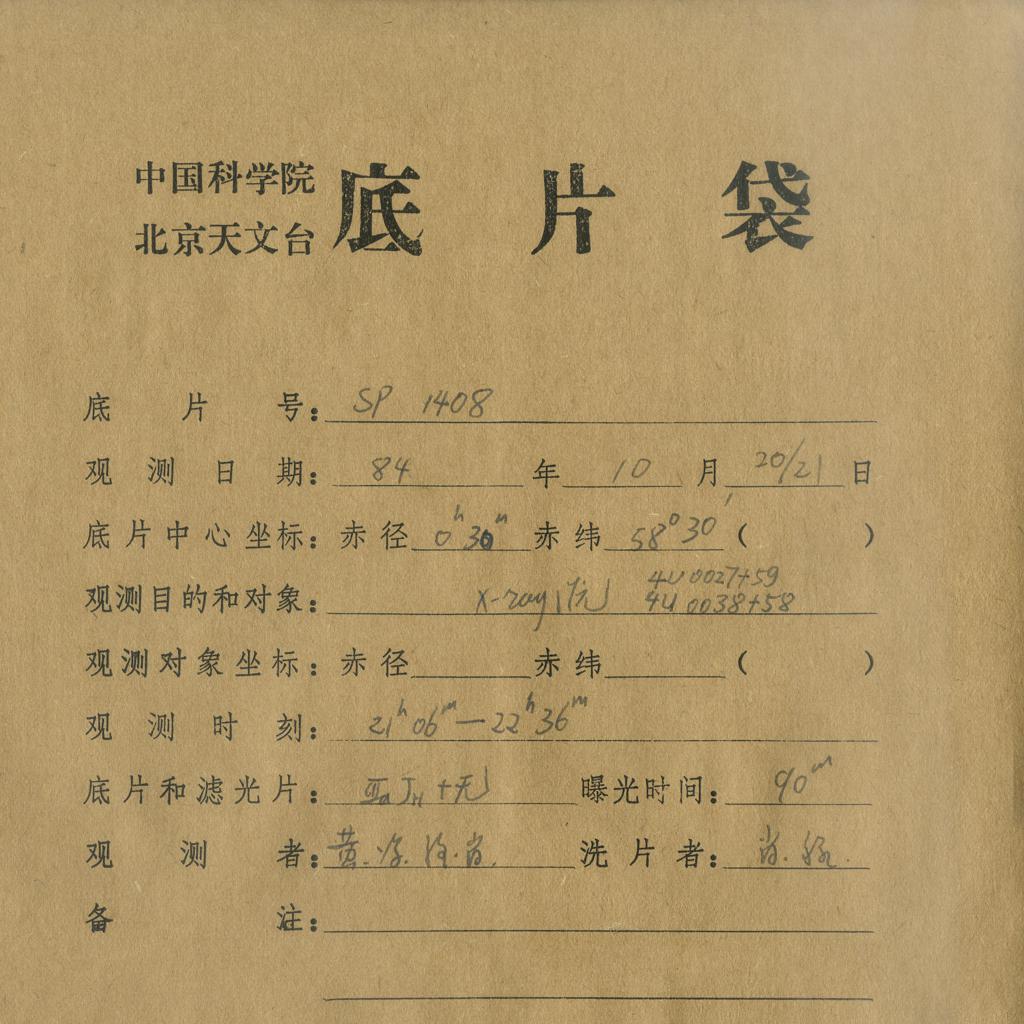 中国科学院
北京天文台
底片袋
底片号： SP 1408
观测日期： 84 年 10 月 20/21 日
底片中心坐标：赤径 0ʰ 30ᵐ 赤纬 58° 30′ (　　)
4U 0027+59
观测目的和对象： X-ray 4U 0038+58
观测对象坐标：赤径　　赤纬　　(　　)
观测时刻： 21ʰ 06ᵐ — 22ʰ 36ᵐ
底片和滤光片： +无 曝光时间： 90ᵐ
观测者： 黄. 肖. 洗片者： 肖.
备注：